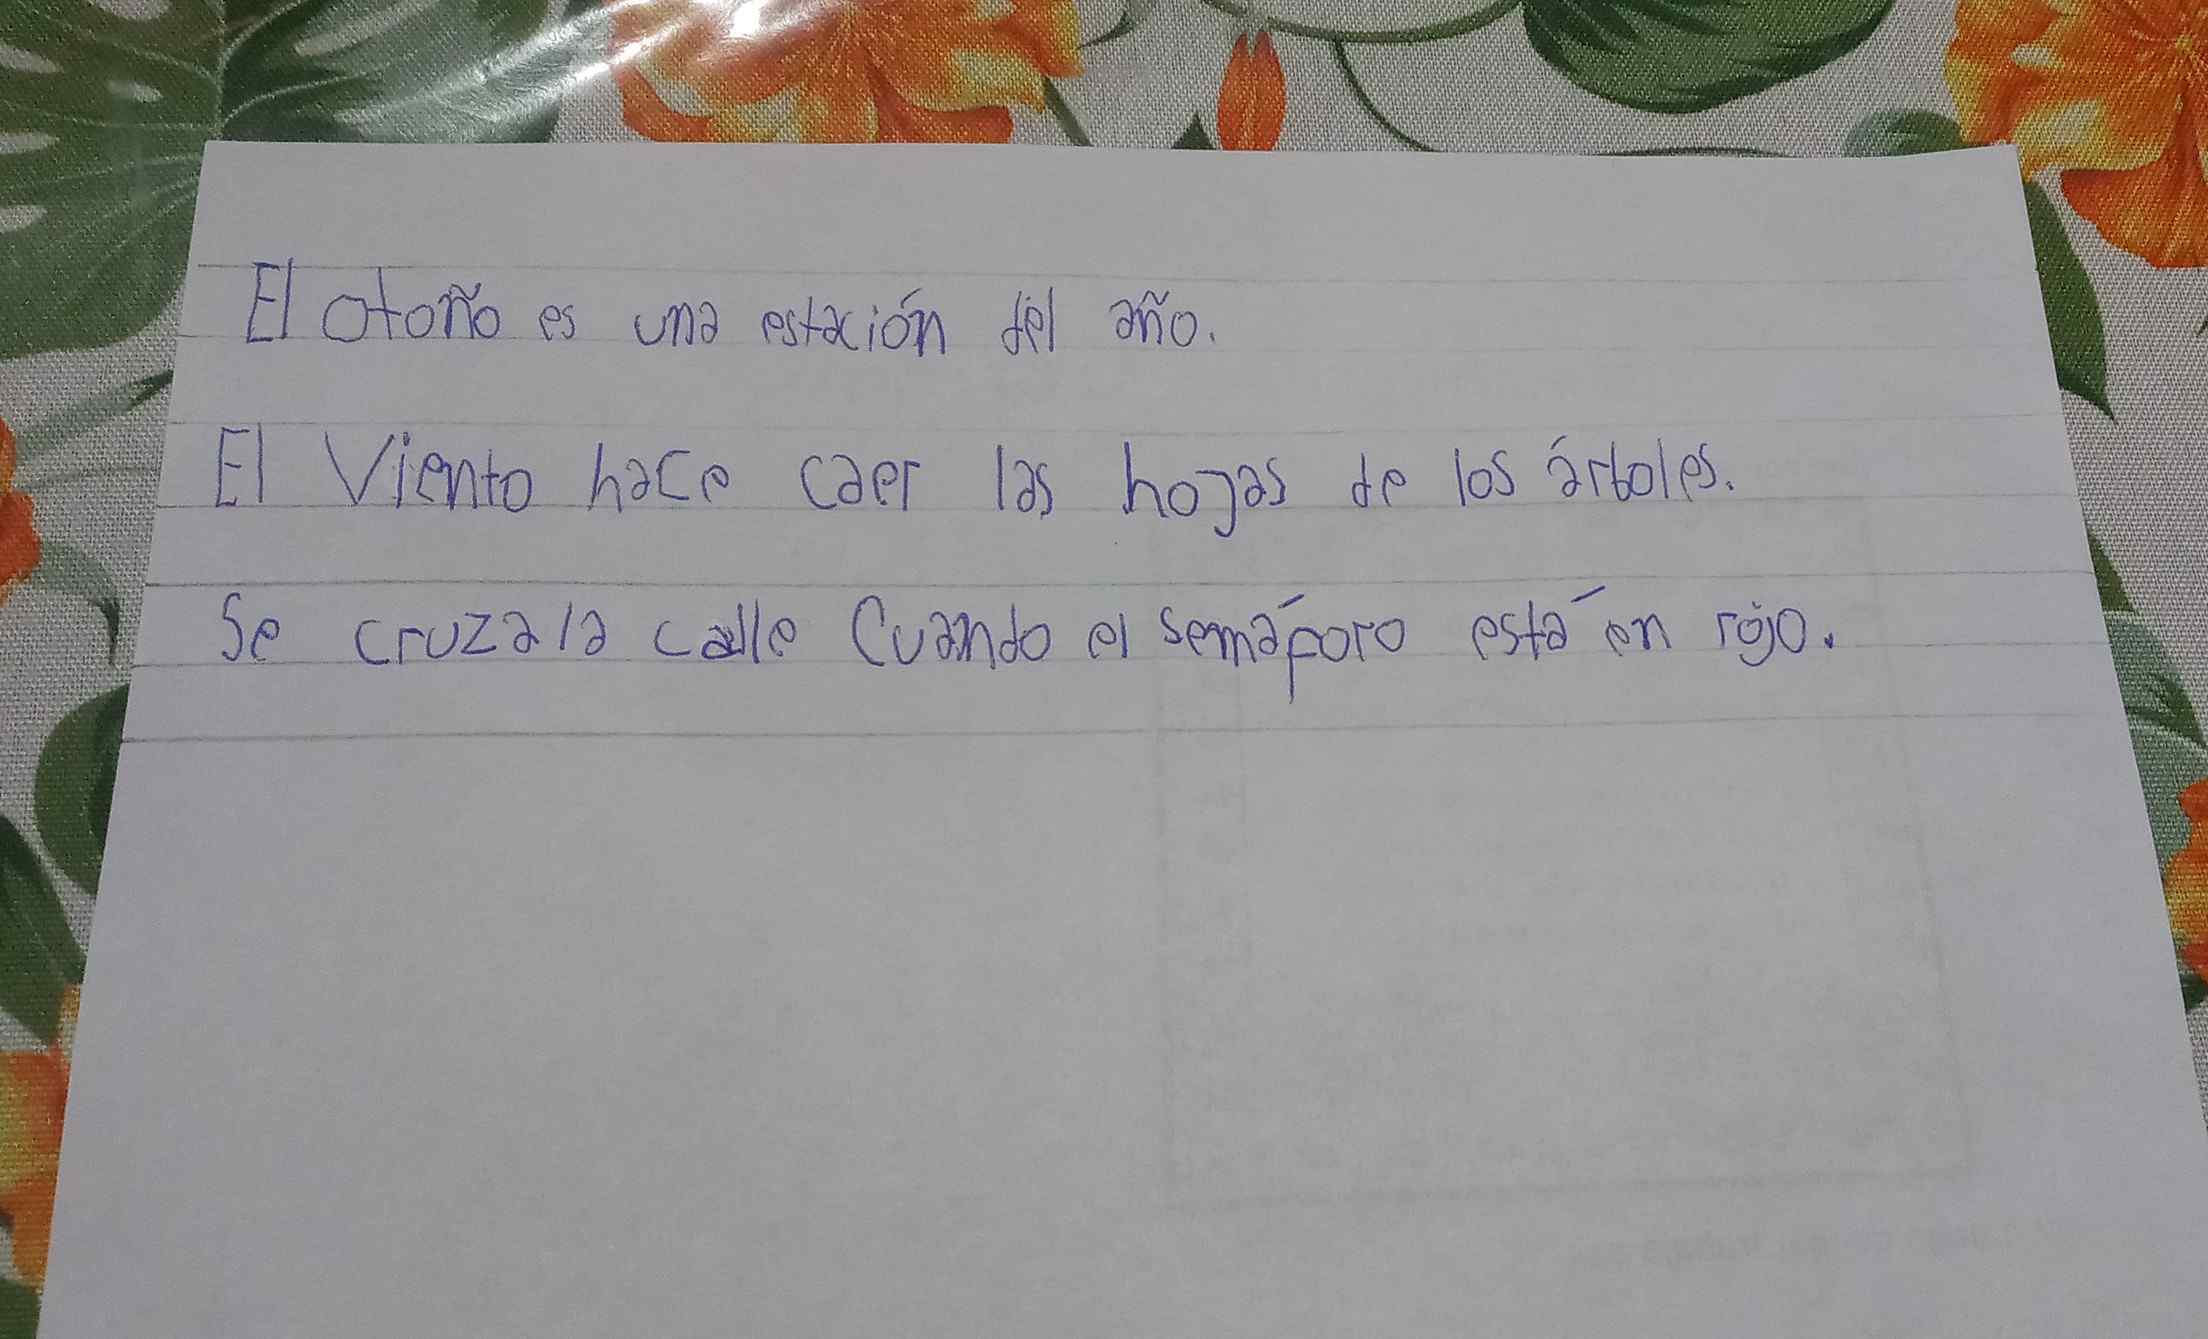 El otoño es una estación del año.
El Viento hace caer las hojas de los árboles.
Se cruza la calle Cuando el semáforo está en rojo.